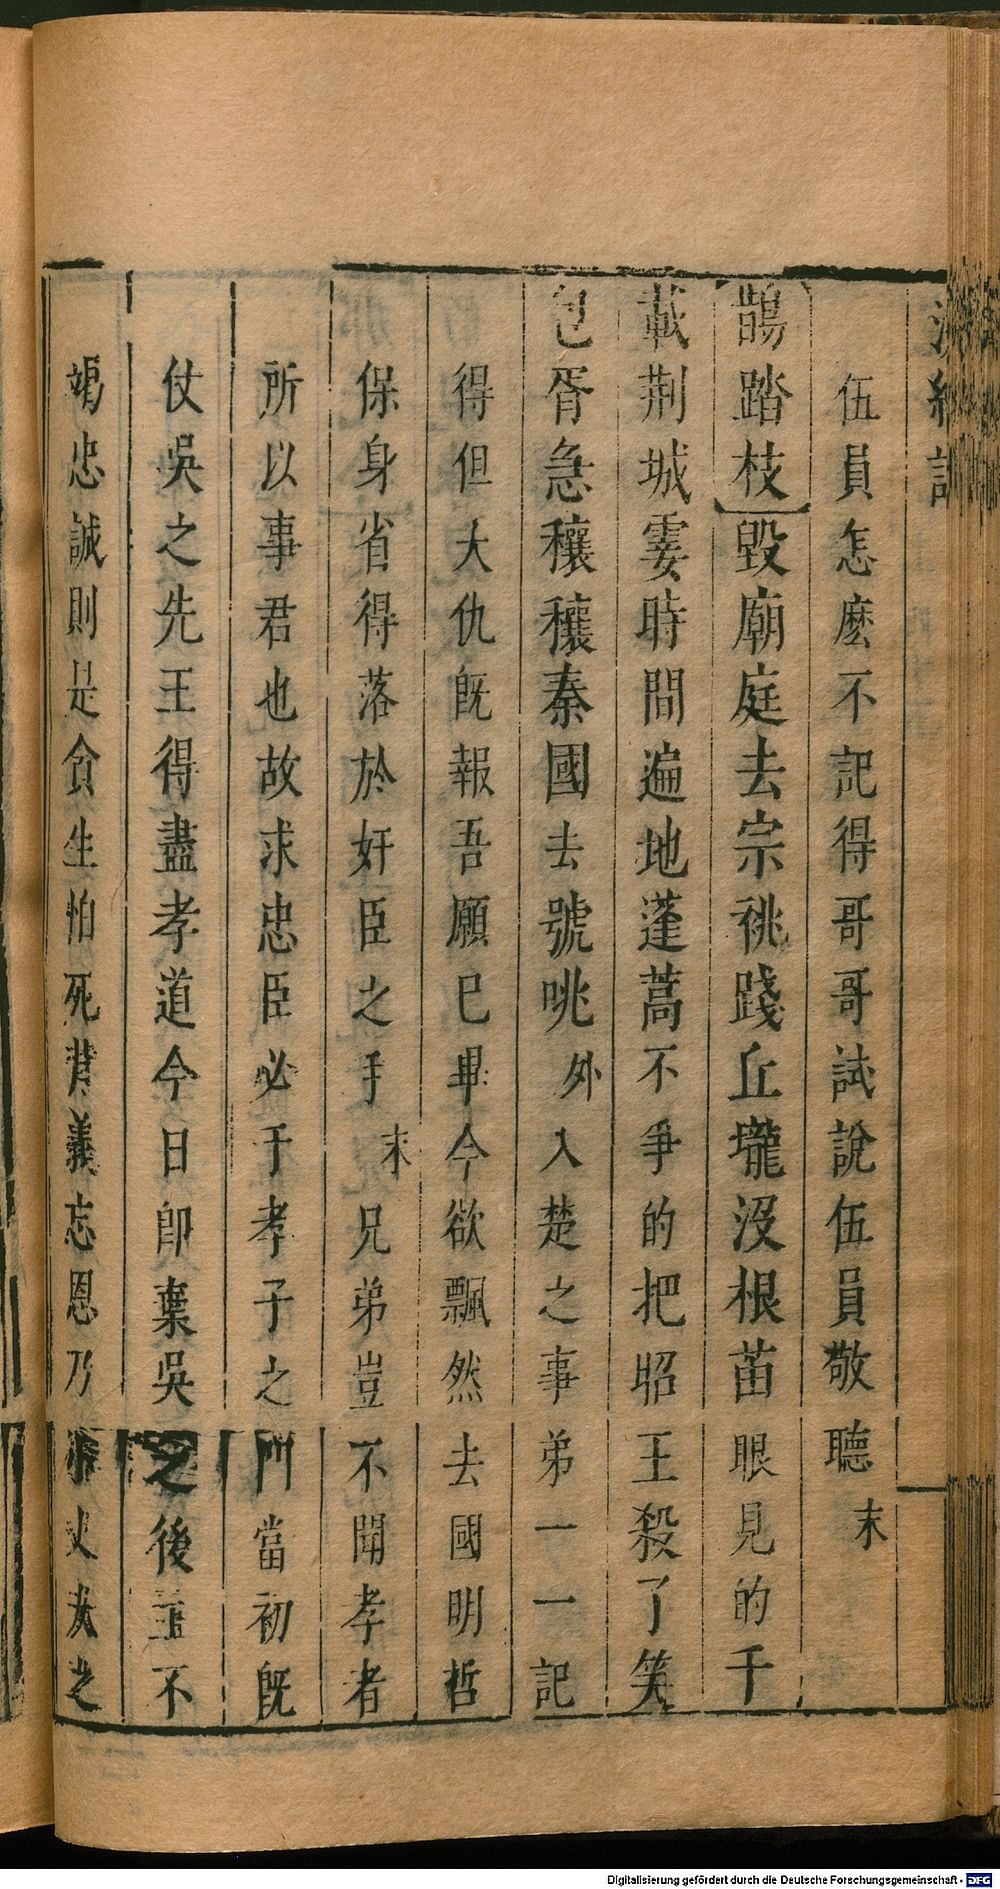 浣紗記
伍員怎麽不記得哥哥試說伍員敬聽末
鵲踏枝毀廟庭去宗祧踐丘壠沒根苗眼見的千
載荆城霎時間遍地蓬蒿不爭的把昭王殺了笑
包胥急穰穰秦國去號咷外入楚之事弟一一記
得但大仇旣報吾願已畢今欲飄然去國明哲
保身省得落於奸臣之手末兄弟豈不聞孝者
所以事君也故求忠臣必于孝子之門當初旣
仗吳之先王得盡孝道今日卽棄吳之後王不
竭忠誠則是貪生怕死背義忘恩乃小丈夫之
Digitalisierung gefördert durch die Deutsche Forschungsgemeinschaft - DFG